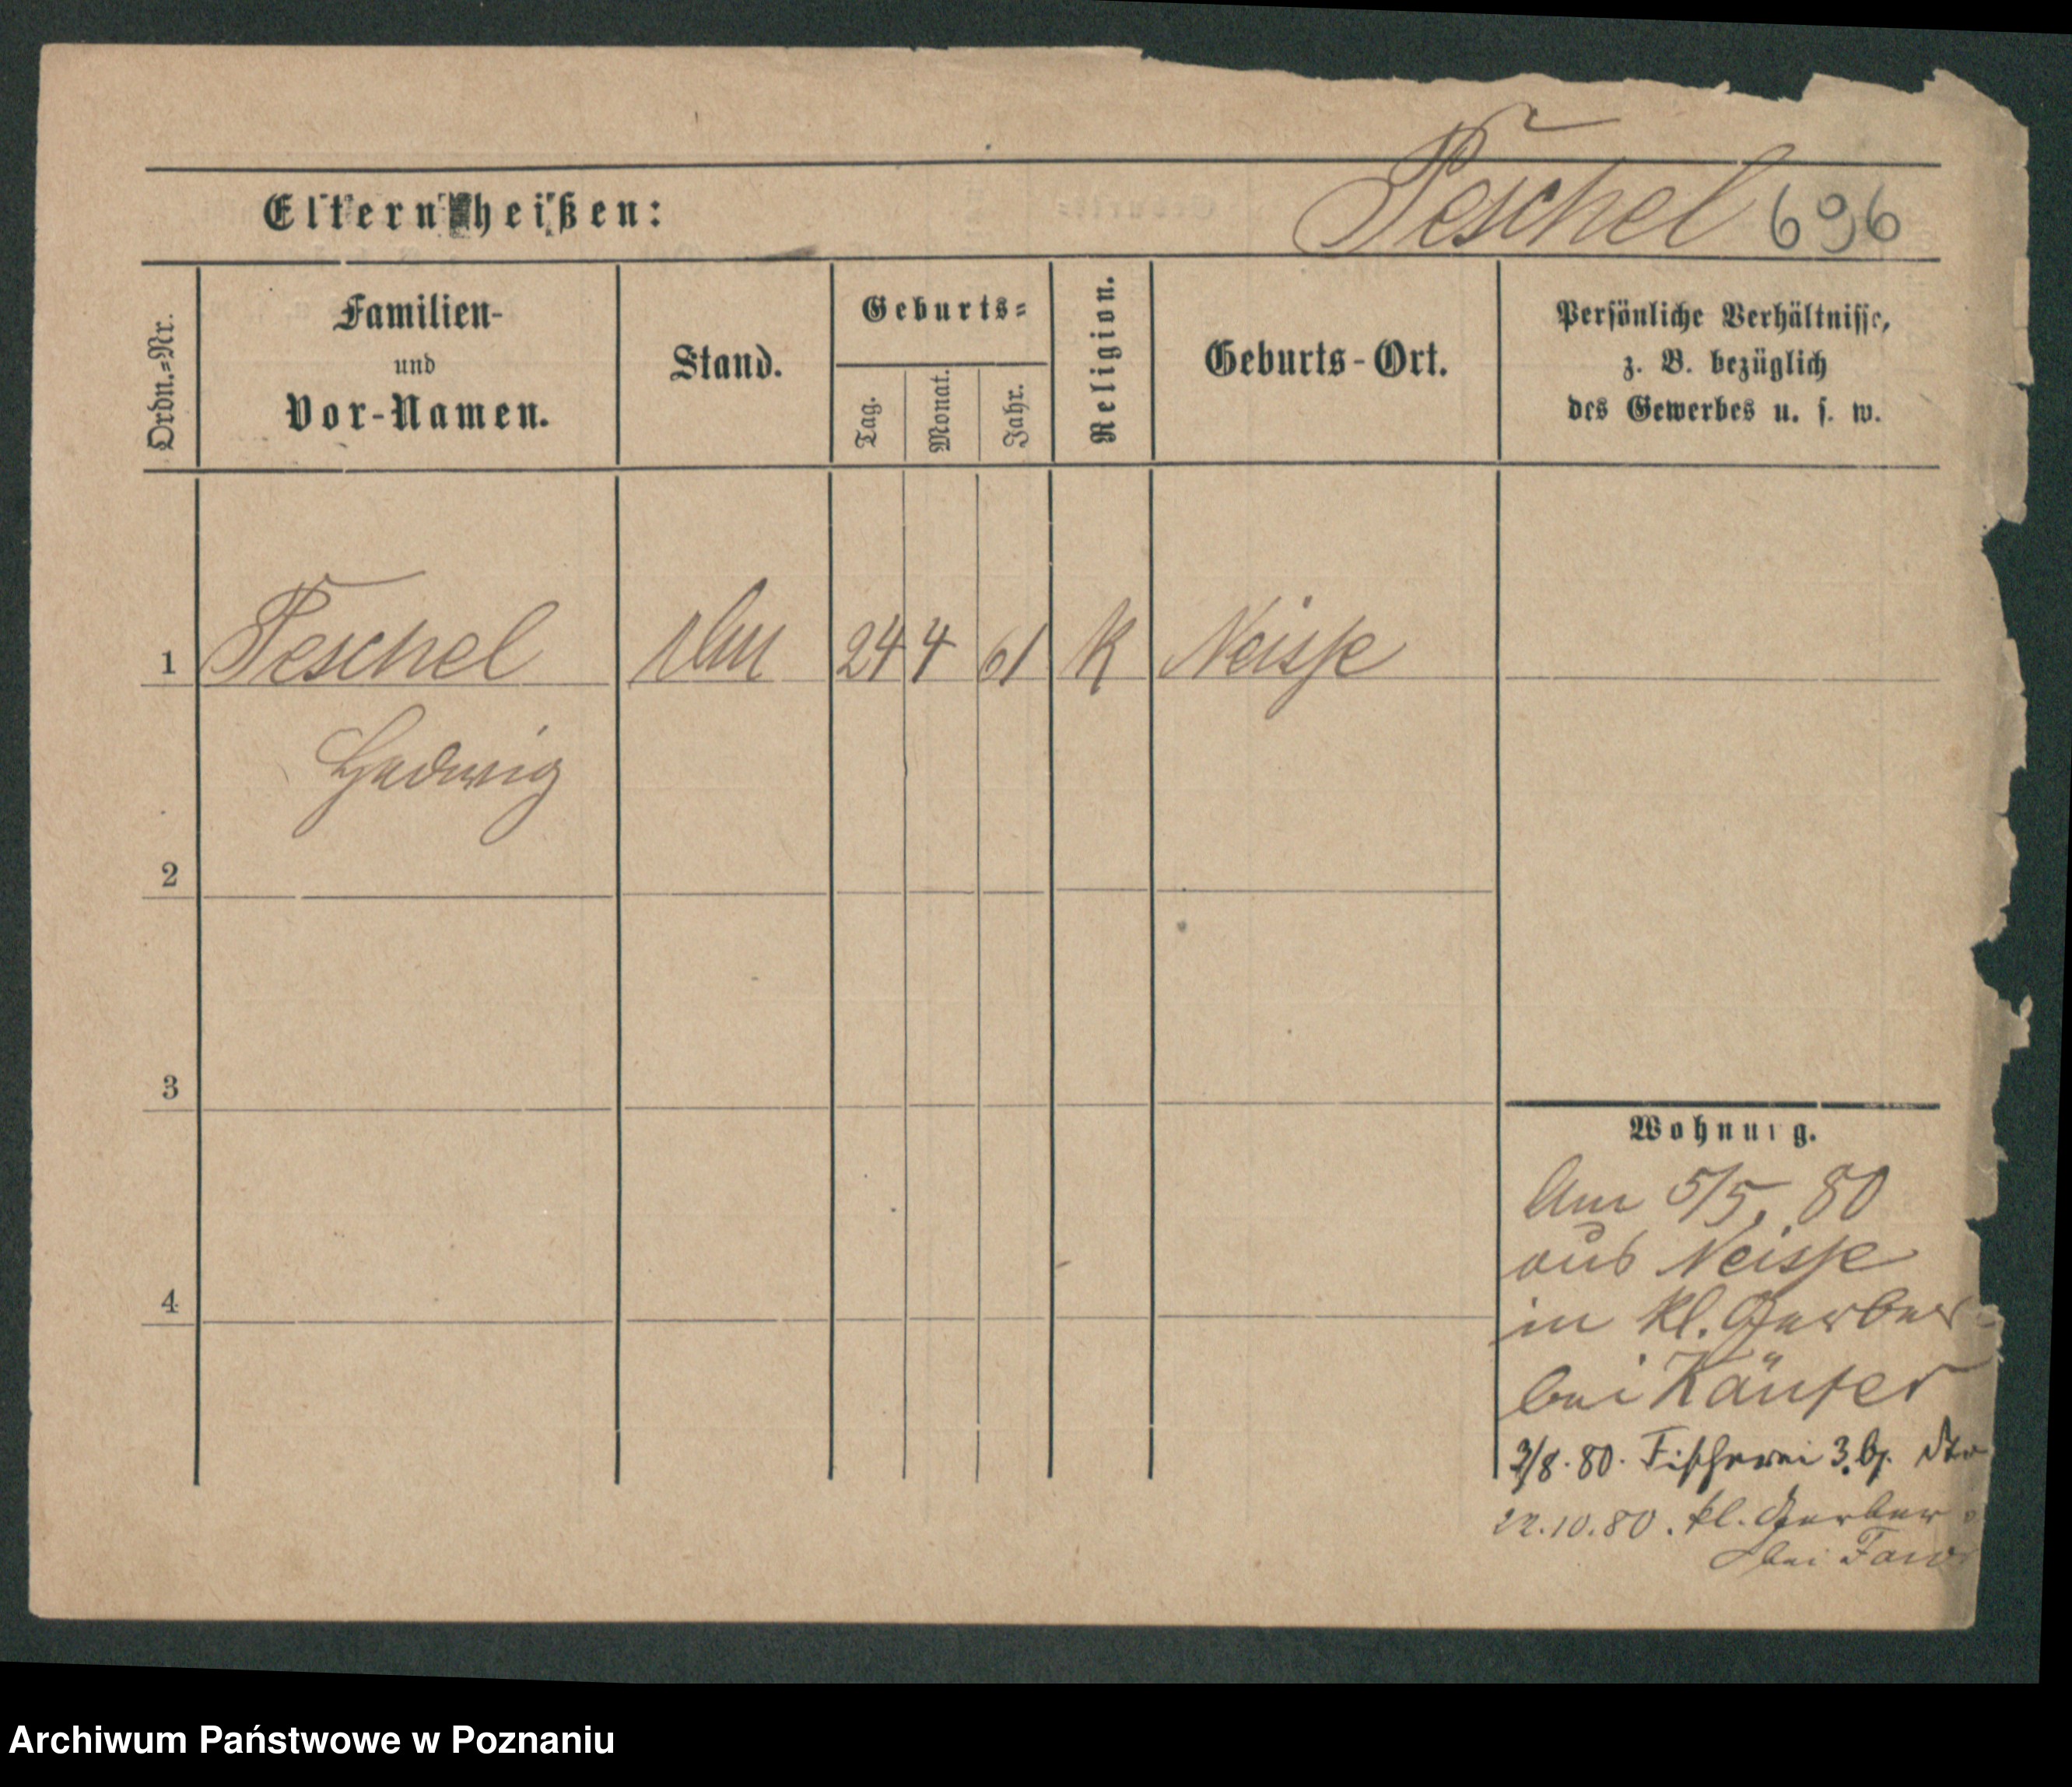 Eltern heißen:
Peschel 696
Ordn.=Nr.
Familien-
und
Vor-Namen.
Stand.
Geburts=
Tag.
Monat.
Jahr.
Religion.
Geburts-Ort.
Persönliche Verhältnisse,
z. B. bezüglich
des Gewerbes u. s. w.
1 Peschel 24 4 61 K Neisse
Hedwig
2
3
4
Wohnung.
Am 5/5. 80
aus Neisse
in kl. Gerber=
bei Käufer
3/8. 80. Fischerei 3. bj.
22.10.80. kl. Gerber
bei
Archiwum Państwowe w Poznaniu